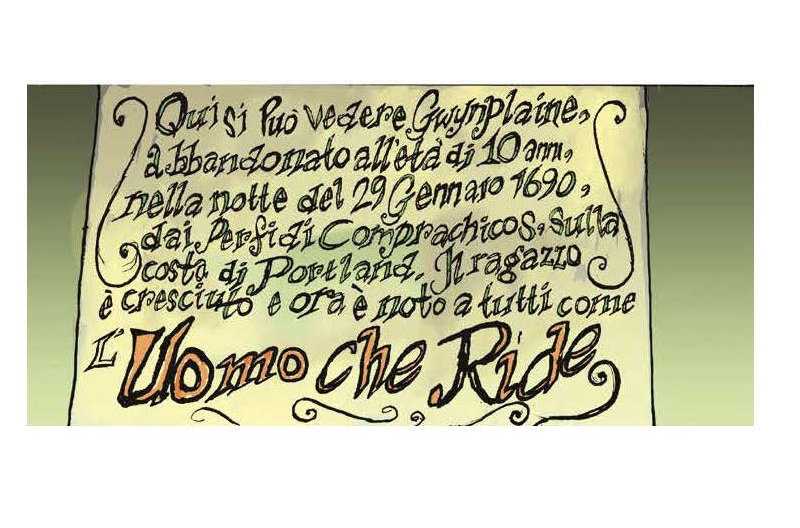 Qui si Può vedere Gwynplaine,
abbandonato all'età di 10 anni,
nella notte del 29 Gennaro 1690,
dai Perfidi Comprachicos, sulla
costa di Portland. Il ragazzo
è cresciuto e ora è noto a tutti come
L'Uomo che Ride